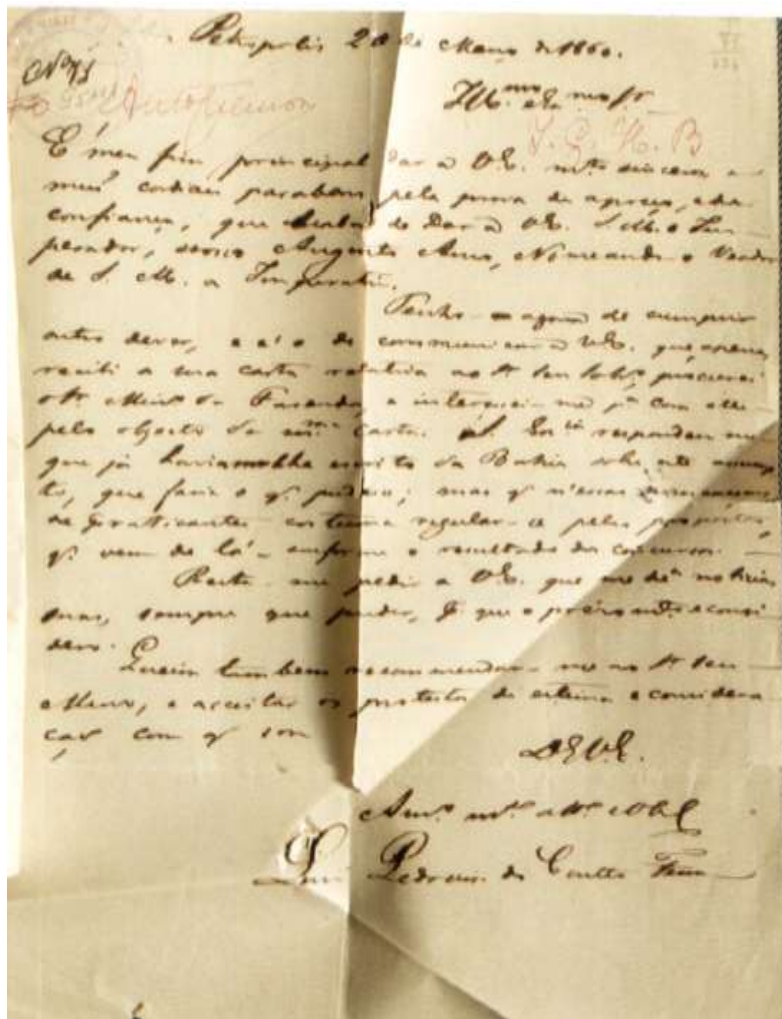 Petropolis 20 de Março de 1860.
Nº 71
Illmo e Exmo Sr
I. G. H. B
E' meu fim principal dar a V.E. mto sinceros e
meus cordiais parabens pela prova de apreço, e de
confiança, que acaba de dar a V.E. S. M. o Im
perador, nosso Augusto Amo, Nomeando-o Veador
de S. M. a Imperatriz.
Tenho agora de cumprir
outro dever, e é o de communicar a V.E. que apenas
recebi a sua carta relativa ao Sr seu Sobrº, procurei
o Sr Minº da Fazenda, e interessei-me jª com elle
pelo objecto da mma carta. S. Exª respondeu-me
que já haviam-lhe escrito da Bahia sobre este assump
to, que faria o q. pudesse; mas q n'essas
de Praticantes costuma regular-se pelas propostas,
q. vem de lá conforme o resultado dos concursos.
Resta-me pedir a V.E. que me dê noticias
suas, sempre que puder, que o prézo mto e consi
dero.
Queira tambem recommendar-me ao Sr seu
Mano, e acceitar os protestos de estima e considera
ção com q sou
De V.E.
Amº mtº
Luiz Pedreira do Coutto Ferraz